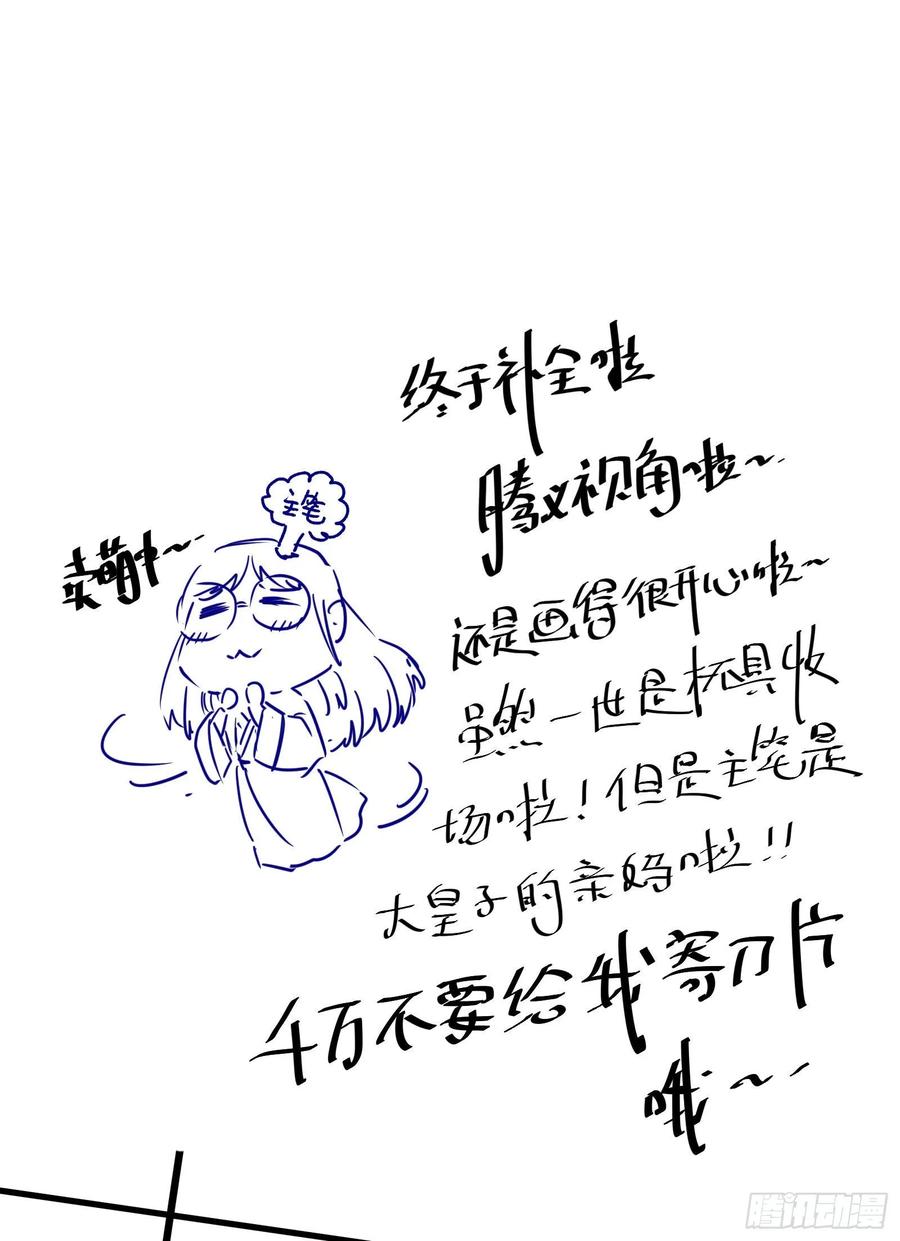 终于补全啦
腾义视角啦~
还是画得很开心啦~
虽然一世是杯具收
场啦！但是主笔是
大皇子的亲妈啦！！
千万不要给我寄刀片
哦~
主笔
卖萌中~
腾讯动漫